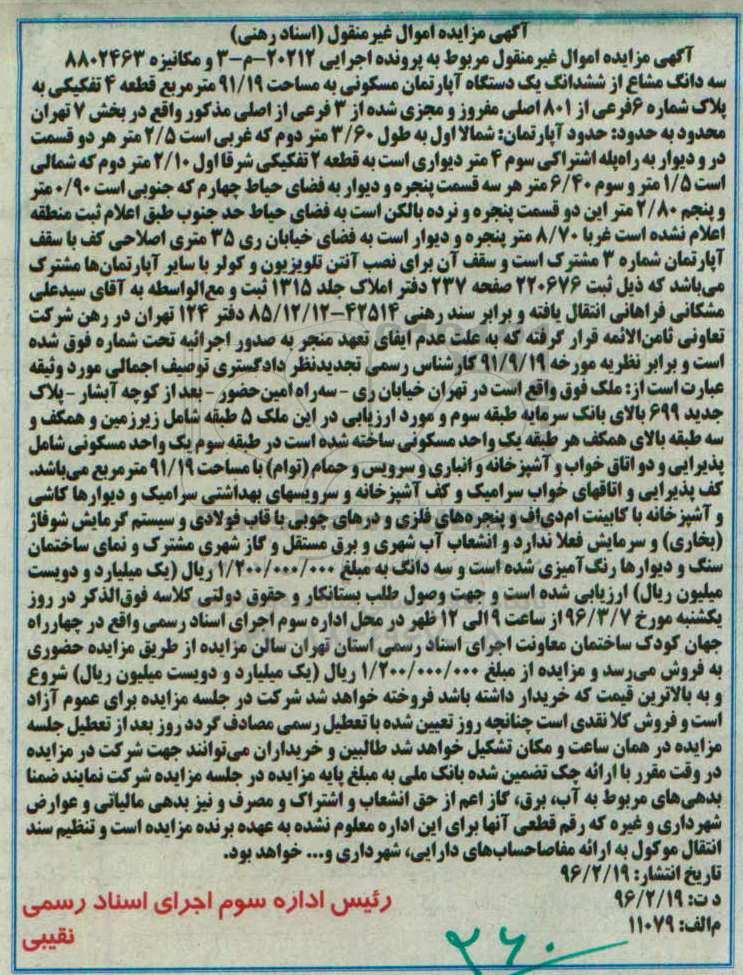 آگهی مزایده اموال غیرمنقول (اسناد رهنی)
آگهی مزایده اموال غیرمنقول مربوط به پرونده اجرایی ۲۰۲۱۲-م-۳ و مکانیزه ۸۸۰۲۴۶۳
سه دانگ مشاع از ششدانگ یک دستگاه آپارتمان مسکونی به مساحت ۹۱/۱۹ مترمربع قطعه ۴ تفکیکی به
پلاک شماره ۶فرعی از ۸۰۱ اصلی مفروز و مجزی شده از ۳ فرعی از اصلی مذکور واقع در بخش ۷ تهران
محدود به حدود: حدود آپارتمان: شمالا اول به طول ۳/۶۰ متر دوم که غربی است ۲/۵ متر هر دو قسمت
در و دیوار به راه‌پله اشتراکی سوم ۴ متر دیواری است به قطعه ۲ تفکیکی شرقا اول ۲/۱۰ متر دوم که شمالی
است ۱/۵ متر و سوم ۶/۴۰ متر هر سه قسمت پنجره و دیوار به فضای حیاط چهارم که جنوبی است ۰/۹۰ متر
و پنجم ۲/۸۰ متر این دو قسمت پنجره و نرده بالکن است به فضای حیاط حد جنوب طبق اعلام ثبت منطقه
اعلام نشده است غربا ۸/۷۰ متر پنجره و دیوار است به فضای خیابان ری ۳۵ متری اصلاحی کف با سقف
آپارتمان شماره ۳ مشترک است و سقف آن برای نصب آنتن تلویزیون و کولر با سایر آپارتمان‌ها مشترک
می‌باشد که ذیل ثبت ۲۲۰۶۷۶ صفحه ۲۳۷ دفتر املاک جلد ۱۳۱۵ ثبت و مع‌الواسطه به آقای سیدعلی
مشکانی فراهانی انتقال یافته و برابر سند رهنی ۴۲۵۱۴-۸۵/۱۲/۱۲ دفتر ۱۲۴ تهران در رهن شرکت
تعاونی ثامن‌الائمه قرار گرفته که به علت عدم ایفای تعهد منجر به صدور اجرائیه تحت شماره فوق شده
است و برابر نظریه مورخه ۹۱/۹/۱۹ کارشناس رسمی تجدیدنظر دادگستری توصیف اجمالی مورد وثیقه
عبارت است از: ملک فوق واقع است در تهران خیابان ری - سه‌راه امین‌حضور - بعد از کوچه آبشار - پلاک
جدید ۶۹۹ بالای بانک سرمایه طبقه سوم و مورد ارزیابی در این ملک ۵ طبقه شامل زیرزمین و همکف و
سه طبقه بالای همکف هر طبقه یک واحد مسکونی ساخته شده است در طبقه سوم یک واحد مسکونی شامل
پذیرایی و دو اتاق خواب و آشپزخانه و انباری و سرویس و حمام (توام) با مساحت ۹۱/۱۹ مترمربع می‌باشد.
کف پذیرایی و اتاقهای خواب سرامیک و کف آشپزخانه و سرویسهای بهداشتی سرامیک و دیوارها کاشی
و آشپزخانه با کابینت ام‌دی‌اف و پنجره‌های فلزی و درهای چوبی با قاب فولادی و سیستم گرمایش شوفاژ
(بخاری) و سرمایش فعلا ندارد و انشعاب آب شهری و برق مستقل و گاز شهری مشترک و نمای ساختمان
سنگ و دیوارها رنگ‌آمیزی شده است و سه دانگ به مبلغ ۱/۲۰۰/۰۰۰/۰۰۰ ریال (یک میلیارد و دویست
میلیون ریال) ارزیابی شده است و جهت وصول طلب بستانکار و حقوق دولتی کلاسه فوق‌الذکر در روز
یکشنبه مورخ ۹۶/۳/۷ از ساعت ۹ الی ۱۲ ظهر در محل اداره سوم اجرای اسناد رسمی واقع در چهارراه
جهان کودک ساختمان معاونت اجرای اسناد رسمی استان تهران سالن مزایده از طریق مزایده حضوری
به فروش می‌رسد و مزایده از مبلغ ۱/۲۰۰/۰۰۰/۰۰۰ ریال (یک میلیارد و دویست میلیون ریال) شروع
و به بالاترین قیمت که خریدار داشته باشد فروخته خواهد شد شرکت در جلسه مزایده برای عموم آزاد
است و فروش کلا نقدی است چنانچه روز تعیین شده با تعطیل رسمی مصادف گردد روز بعد از تعطیل جلسه
مزایده در همان ساعت و مکان تشکیل خواهد شد طالبین و خریداران می‌توانند جهت شرکت در مزایده
در وقت مقرر با ارائه چک تضمین شده بانک ملی به مبلغ پایه مزایده در جلسه مزایده شرکت نمایند ضمنا
بدهی‌های مربوط به آب، برق، گاز اعم از حق انشعاب و اشتراک و مصرف و نیز بدهی مالیاتی و عوارض
شهرداری و غیره که رقم قطعی آنها برای این اداره معلوم نشده به عهده برنده مزایده است و تنظیم سند
انتقال موکول به ارائه مفاصاحساب‌های دارایی، شهرداری و... خواهد بود.
تاریخ انتشار: ۹۶/۲/۱۹
د ت: ۹۶/۲/۱۹
م‌الف: ۱۱۰۷۹
رئیس اداره سوم اجرای اسناد رسمی
نقیبی
۲۶۰